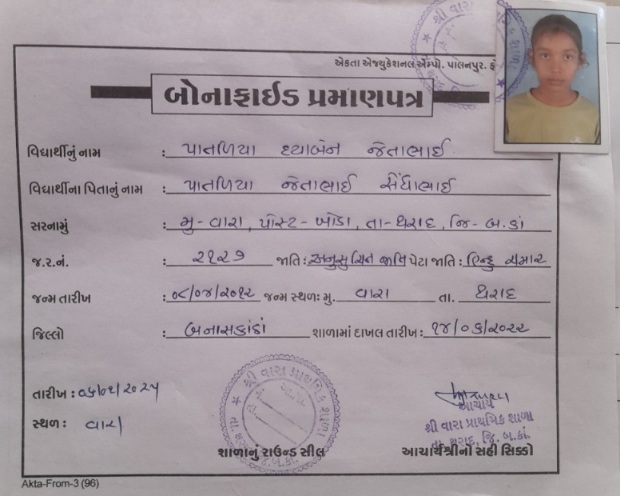 એકતા એજ્યુકેશનલ એમ્પો. પાલનપુર.
બોનાફાઈડ પ્રમાણપત્ર
વિદ્યાર્થીનું નામ : પાતળિયા દયાબેન જેતાભાઈ
વિદ્યાર્થીના પિતાનું નામ : પાતળિયા જેતાભાઈ સેંધાભાઈ
સરનામું : મુ-વારા, પોસ્ટ-ખોડા, તા-થરાદ, જિ-બ.કાં
જ.ર.નં. : ૨૧૨૭ જાતિ : અનુસુચિત જાતિ પેટા જાતિ : હિન્દુ ચમાર
જન્મ તારીખ : ૦૮/૦૪/૨૦૧૨ જન્મ સ્થળ: મુ. વારા તા. થરાદ
જિલ્લો : બનાસકાંઠા શાળામાં દાખલ તારીખ : ૧૪/૦૬/૨૦૨૨
તારીખ :
સ્થળ : વારા
શ્રી વારા પ્રાથમિક શાળા
આચાર્ય
શ્રી વારા પ્રાથમિક શાળા
તા. થરાદ, જિ. બ.કાં.
શાળાનું રાઉન્ડ સીલ આચાર્યશ્રીનો સહી સિક્કો
Akta-From-3 (96)